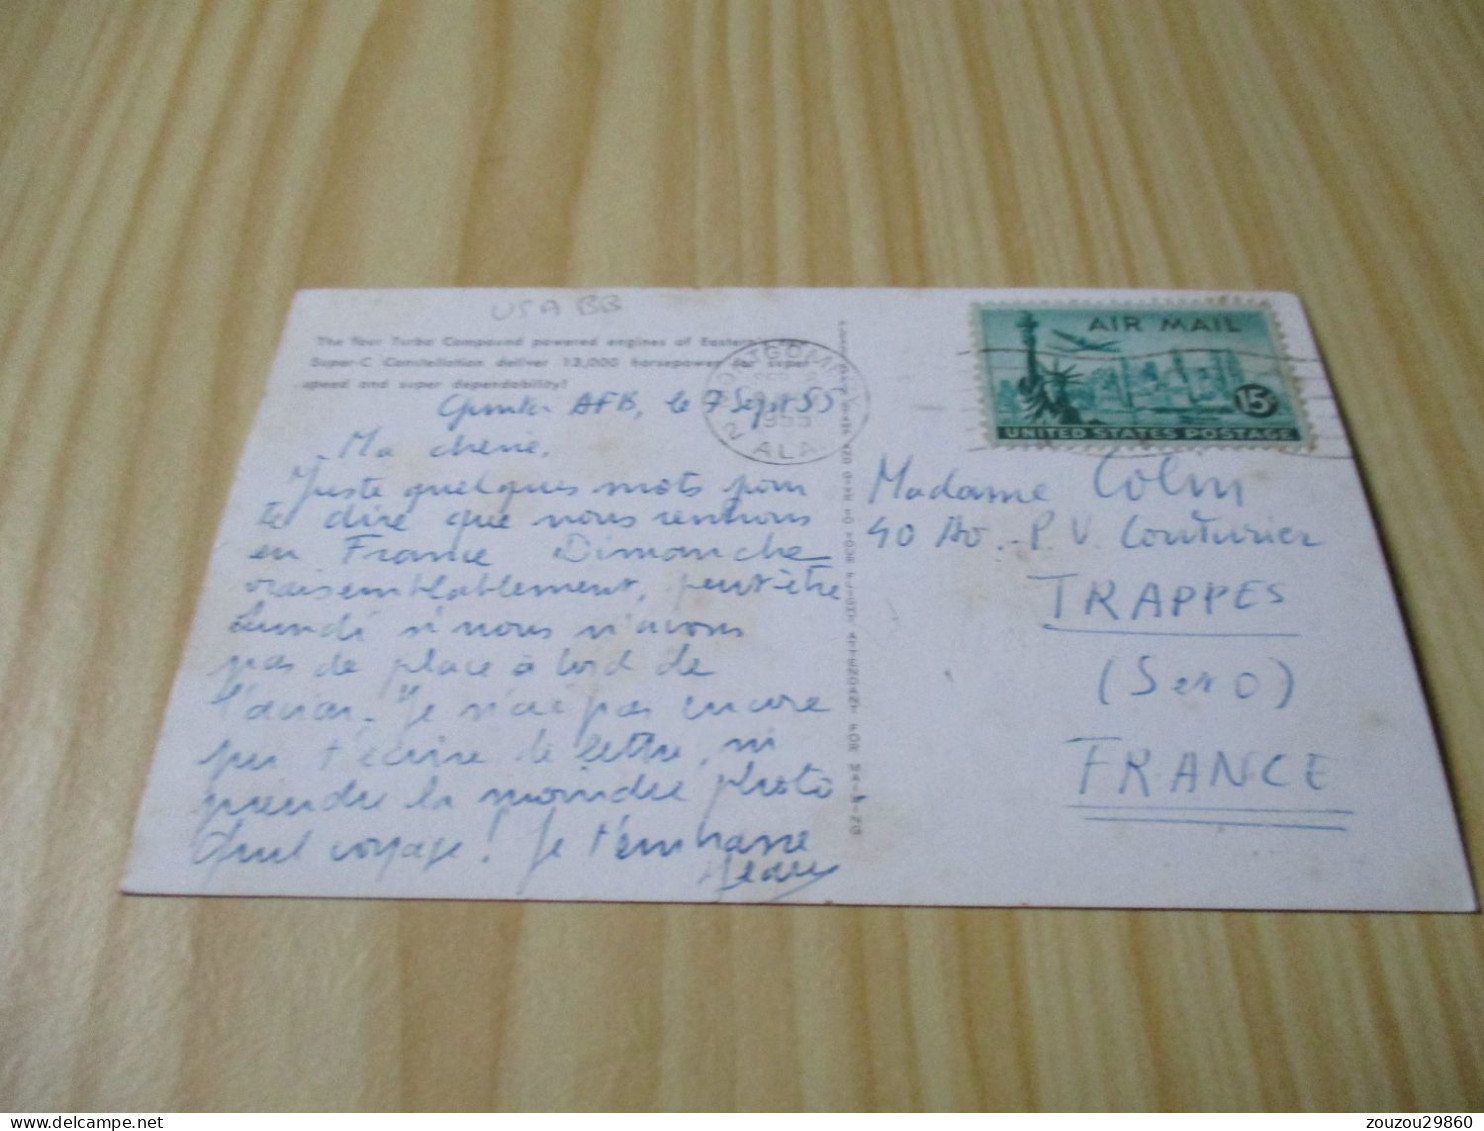 USA BB
The four Turbo Compound powered engines of Eastern's
Super-C Constellation deliver 13,000 horsepower for super
speed and super dependability!
Gunter AFB, le 7 Sept 55
Ma cherie,
Juste quelques mots pour
te dire que nous rentrons
en France Dimanche
vraisemblablement, peut être
Lundi si nous n'avons
pas de place à bord de
l'avion. Je n'ai pas encore
pu t'écrire de lettre, ni
prendre la moindre photo.
Quel voyage! Je t'embrasse
MONTGOMERY
2
1955
ALA.
GIVE TO YOUR FLIGHT ATTENDANT FOR MAILING
AIR MAIL
15¢
UNITED STATES POSTAGE
Madame Colin
40 Av. P. V. Couturier
TRAPPES
(S et O)
FRANCE
zouzou29860